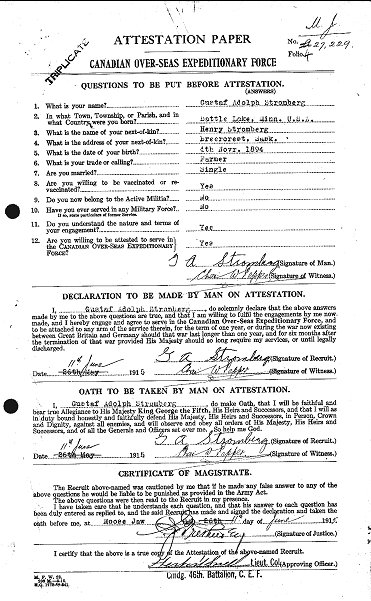 M J
ATTESTATION PAPER
No. 227,229
Folio
TRIPLICATE
CANADIAN OVER-SEAS EXPEDITIONARY FORCE
QUESTIONS TO BE PUT BEFORE ATTESTATION.
(ANSWERS)
1. What is your name? Gustaf Adolph Stromberg
2. In what Town, Township, or Parish, and in
what Country were you born? Bottle Lake, Minn. U.S.A.
3. What is the name of your next-of-kin? Henry Stromberg
4. What is the address of your next-of-kin? Brecrorest, Sask.
5. What is the date of your birth? 4th Novr. 1894
6. What is your trade or calling? Farmer
7. Are you married? Single
8. Are you willing to be vaccinated or re-
vaccinated? Yes
9. Do you now belong to the Active Militia? No
10. Have you ever served in any Military Force? No
If so, state particulars of former Service.
11. Do you understand the nature and terms of
your engagement? Yes
12. Are you willing to be attested to serve in the
CANADIAN OVER-SEAS EXPEDITIONARY
FORCE? Yes
G A Stromberg (Signature of Man.)
Chas W Pepper (Signature of Witness.)
DECLARATION TO BE MADE BY MAN ON ATTESTATION.
I, Gustaf Adolph Stromberg, do solemnly declare that the above answers
made by me to the above questions are true, and that I am willing to fulfil the engagements by me now
made, and I hereby engage and agree to serve in the Canadian Over-Seas Expeditionary Force, and
to be attached to any arm of the service therein, for the term of one year, or during the war now existing
between Great Britain and Germany should that war last longer than one year, and for six months after
the termination of that war provided His Majesty should so long require my services, or until legally
discharged.
G A Stromberg (Signature of Recruit.)
11th June
Date 26th May 1915 Chas W Pepper (Signature of Witness.)
OATH TO BE TAKEN BY MAN ON ATTESTATION.
I, Gustaf Adolph Stromberg do make Oath, that I will be faithful and
bear true Allegiance to His Majesty King George the Fifth, His Heirs and Successors, and that I will as
in duty bound honestly and faithfully defend His Majesty, His Heirs and Successors, in Person, Crown
and Dignity, against all enemies, and will observe and obey all orders of His Majesty, His Heirs and
Successors, and of all the Generals and Officers set over me. So help me God.
G A Stromberg (Signature of Recruit.)
11th June
Date 26th May 1915 Chas W Pepper (Signature of Witness.)
CERTIFICATE OF MAGISTRATE.
The Recruit above-named was cautioned by me that if he made any false answer to any of the
above questions he would be liable to be punished as provided in the Army Act.
The above questions were then read to the Recruit in my presence.
I have taken care that he understands each question, and that his answer to each question has
been duly entered as replied to, and the said Recruit has made and signed the declaration and taken the
oath before me, at Moose Jaw this 26th 11 day of June 1915
(Signature of Justice.)
I certify that the above is a true copy of the Attestation of the above-named Recruit.
Lieut. Col (Approving Officer.)
Cmdg. 46th. Battalion, C. E. F.
M. F. W. 23.